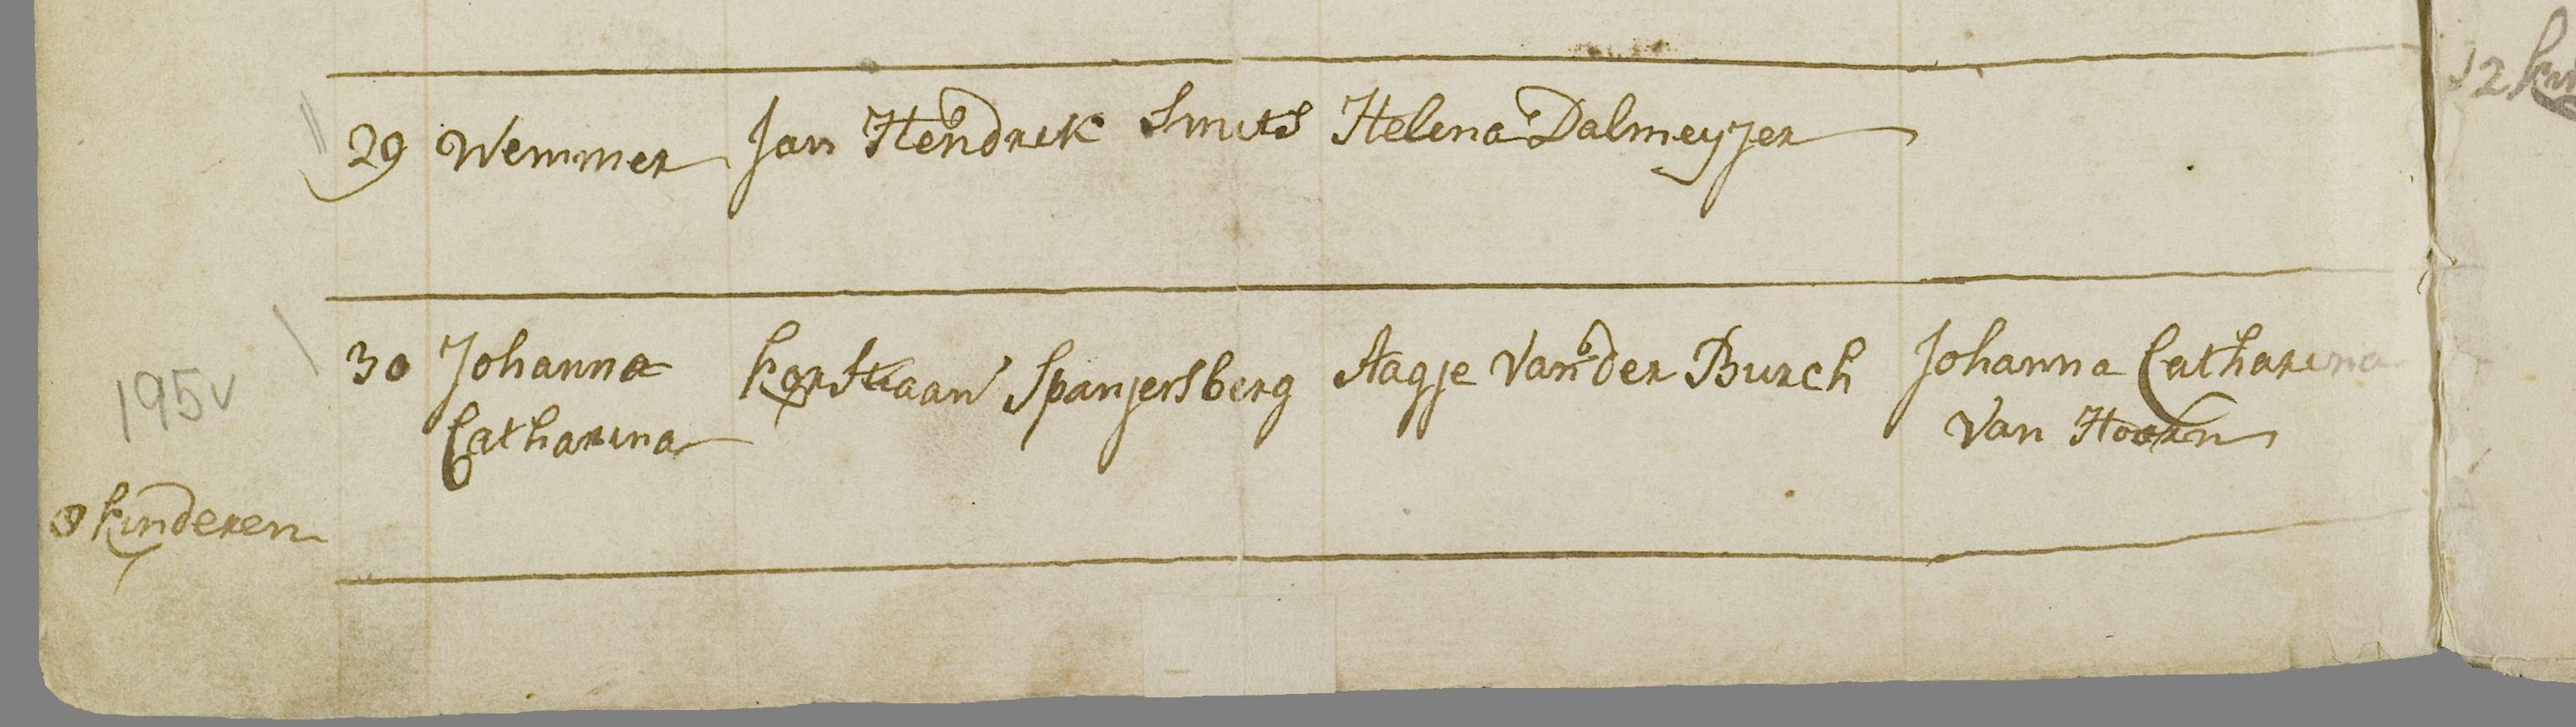 29 Wemmer Jan Hendrik Smits Helena Dalmeyjer
30 Johanna Korstiaan Spanjersberg Aagje Van der Burch Johanna Catharina
Catharina Van Hoorn
195v
kinderen
12